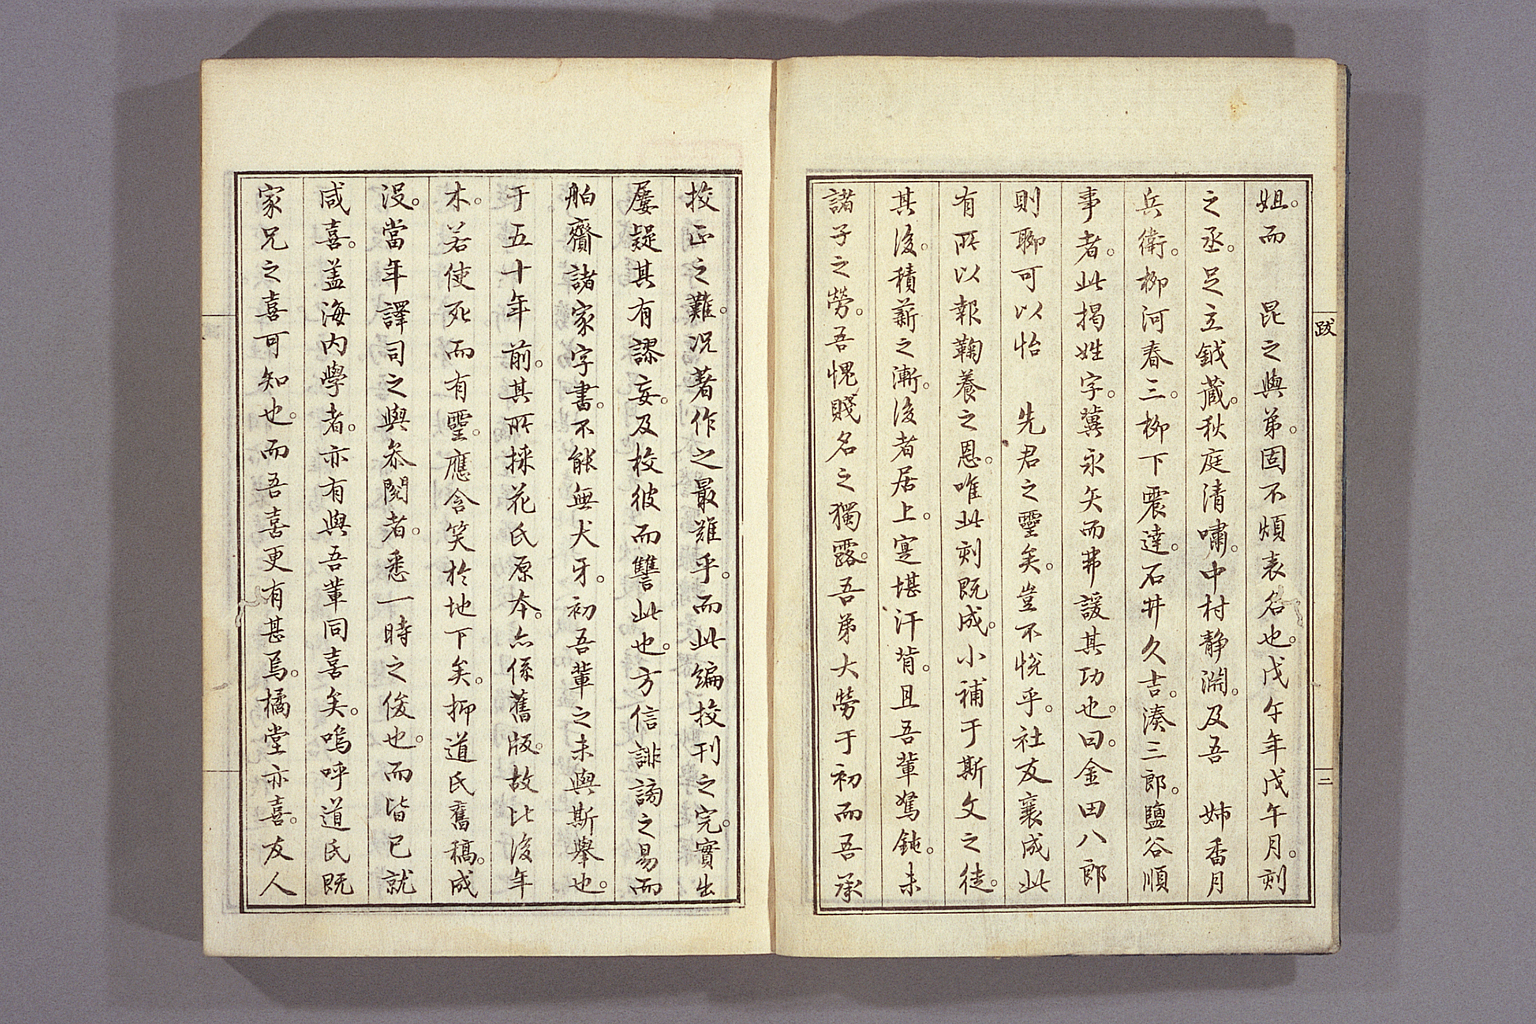 姐。而　昆之與弟。固不煩表名也。戊午年戊午月。刻
之丞。足立鉞藏。秋庭清嘯。中村静淵。及吾　姉香月
兵衛。柳河春三。柳下震達。石井久吉。湊三郎。鹽谷順
事者。此揭姓字。冀永矢而弗諼其功也。曰。金田八郎
則聊可以怡　先君之靈矣。豈不悅乎。社友襄成此
有所以報鞠養之恩。唯此刻既成。小補于斯文之徒。
其後。積薪之漸。後者居上。寔堪汗背。且吾輩駑鈍。未
諸子之勞。吾愧賤名之獨露。吾弟大勞于初而吾承
跋
二
校正之難。况著作之最難乎。而此編校刊之完。實出
屢疑其有謬妄。及校彼而讐此也。方信誹謗之易而
舶齎諸家字書。不能無犬牙。初吾輩之未與斯舉也。
于五十年前。其所採花氏原本。亦係舊版。故比後年
木。若使死而有靈。應含笑於地下矣。抑道氏舊稿。成
没。當年譯司之與叅閱者。悉一時之俊也。而皆已就
咸喜。盖海内學者。亦有與吾輩同喜矣。嗚呼道氏既
家兄之喜可知也。而吾喜更有甚焉。橘堂亦喜。友人